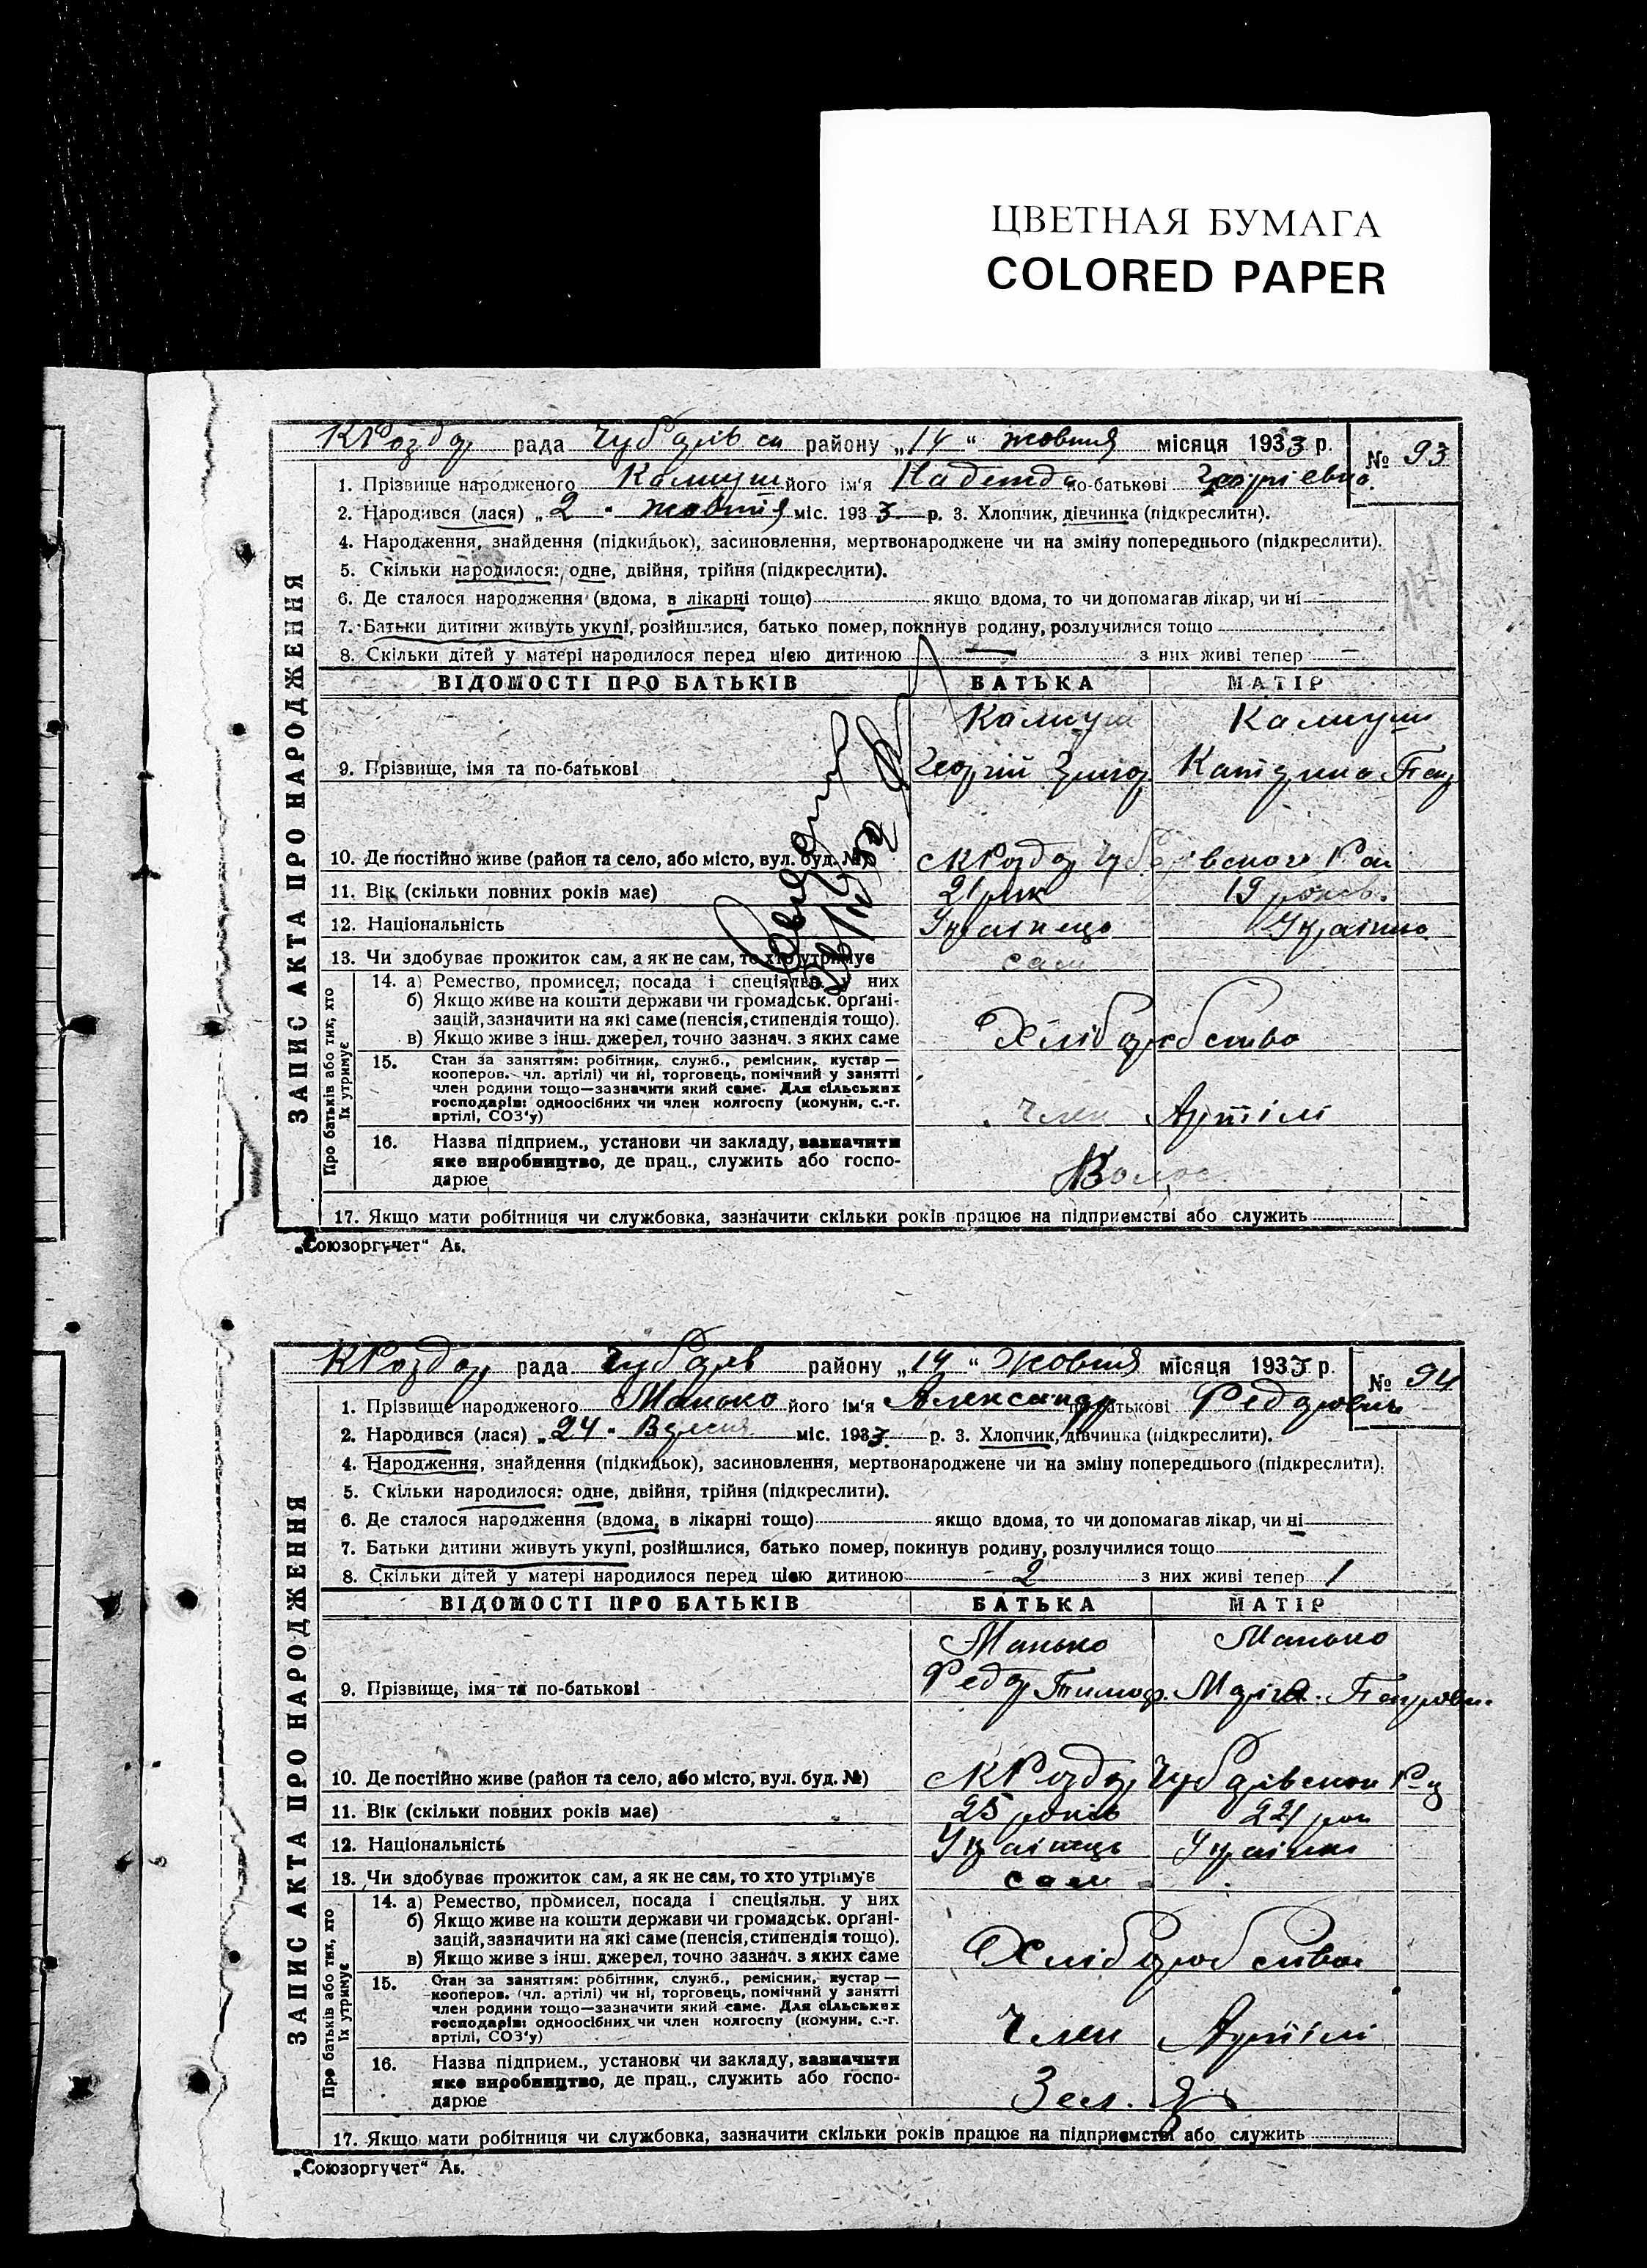 ЦВЕТНАЯ БУМАГА
COLORED PAPER
КРоздор рада Чубарівськ району „14“ жовтня місяця 1933 р. № 93
1. Прізвище народженого Калнуш його ім'я Надежда по-батькові Георгіевна.
2. Народився (лася) „2 " жовтня міс. 1933 р. 3. Хлопчик, дівчинка (підкреслити).
4. Народження, знайдення (підкидьок), засиновлення, мертвонароджене чи на зміну попереднього (підкреслити).
5. Скільки народилося: одне, двійня, трійня (підкреслити).
6. Де сталося народження (вдома, в лікарні тощо) якщо вдома, то чи допомагав лікар, чи ні
7. Батьки дитини живуть укупі, розійшлися, батько помер, покинув родину, розлучилися тощо
8. Скільки дітей у матері народилося перед цією дитиною — з них живі тепер —
ВІДОМОСТІ ПРО БАТЬКІВ БАТЬКА МАТІР
Калнуш Калнуш
9. Прізвище, імя та по-батькові Георгій Григор. Катерина
10. Де постійно живе (район та село, або місто, вул. буд. №) с КРоздор Чубарівського Рай
11. Вік (скільки повних років має) 21 рік 19 років.
12. Національність Українець Українка
13. Чи здобуває прожиток сам, а як не сам, то хто утримує сам
14. а) Ремество, промисел, посада і спеціяльн. у них
б) Якщо живе на кошти держави чи громадськ. органі-
зацій, зазначити на які саме (пенсія, стипендія тощо).
в) Якщо живе з інш. джерел, точно зазнач. з яких саме Хліборобство
15. Стан за заняттям: робітник, служб., ремісник, кустар —
кооперов. чл. артілі) чи ні, торговець, помічний у занятті
член родини тощо—зазначити який саме. Для сільських
господарів: одноосібних чи член колгоспу (комуни, с.-г.
артілі, СОЗ'у) Член Артілі
16. Назва підприєм., установи чи закладу, зазначити
яке виробництво, де прац., служить або госпо-
дарює
17. Якщо мати робітниця чи службовка, зазначити скільки років працює на підприємстві або служить
ЗАПИС АКТА ПРО НАРОДЖЕННЯ
Про батьків або тих, хто їх утримує
„Союзоргучет“ Аʙ.
КРоздор рада Чубарів району „14“ Жовтня місяця 1933 р. № 94
1. Прізвище народженого Манько його ім'я Александр по-батькові Федорович
2. Народився (лася) „24 " Вересня міс. 1933 р. 3. Хлопчик, дівчинка (підкреслити).
4. Народження, знайдення (підкидьок), засиновлення, мертвонароджене чи на зміну попереднього (підкреслити).
5. Скільки народилося: одне, двійня, трійня (підкреслити).
6. Де сталося народження (вдома, в лікарні тощо) якщо вдома, то чи допомагав лікар, чи ні
7. Батьки дитини живуть укупі, розійшлися, батько помер, покинув родину, розлучилися тощо
8. Скільки дітей у матері народилося перед цією дитиною 2 з них живі тепер 1
ВІДОМОСТІ ПРО БАТЬКІВ БАТЬКА МАТІР
Манько Манько
9. Прізвище, імя та по-батькові Федор Тимоф. Марія
10. Де постійно живе (район та село, або місто, вул. буд. №) с КРоздор Чубарівськой
11. Вік (скільки повних років має) 25 років
12. Національність Українець Українка
13. Чи здобуває прожиток сам, а як не сам, то хто утримує сам
14. а) Ремество, промисел, посада і спеціяльн. у них
б) Якщо живе на кошти держави чи громадськ. органі-
зацій, зазначити на які саме (пенсія, стипендія тощо).
в) Якщо живе з інш. джерел, точно зазнач. з яких саме Хліборобство
15. Стан за заняттям: робітник, служб., ремісник, кустар —
кооперов. (чл. артілі) чи ні, торговець, помічний у занятті
член родини тощо—зазначити який саме. Для сільських
господарів: одноосібних чи член колгоспу (комуни, с.-г.
артілі, СОЗ'у) Член Артілі
16. Назва підприєм., установи чи закладу, зазначити
яке виробництво, де прац., служить або госпо-
дарює
17. Якщо мати робітниця чи службовка, зазначити скільки років працює на підприємстві або служить
ЗАПИС АКТА ПРО НАРОДЖЕННЯ
Про батьків або тих, хто їх утримує
„Союзоргучет“ Аʙ.